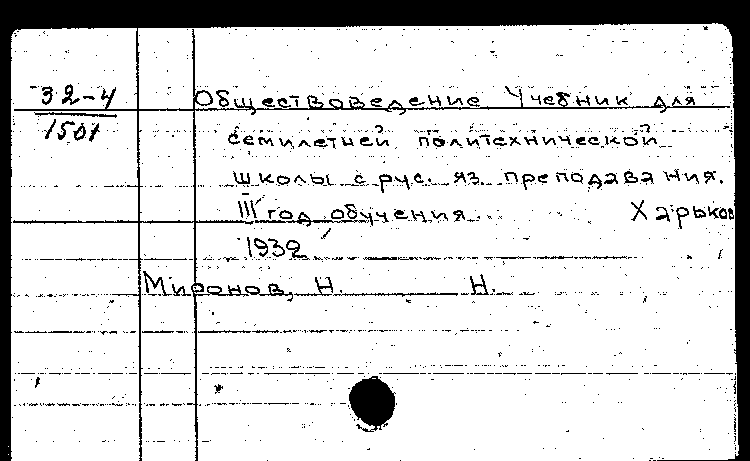 32-4
1501
Обществоведение Учебник для
семилетней политехнической
школы с рус. яз преподавания.
III год обучения Харьков
1932
Миронов, Н. Н.